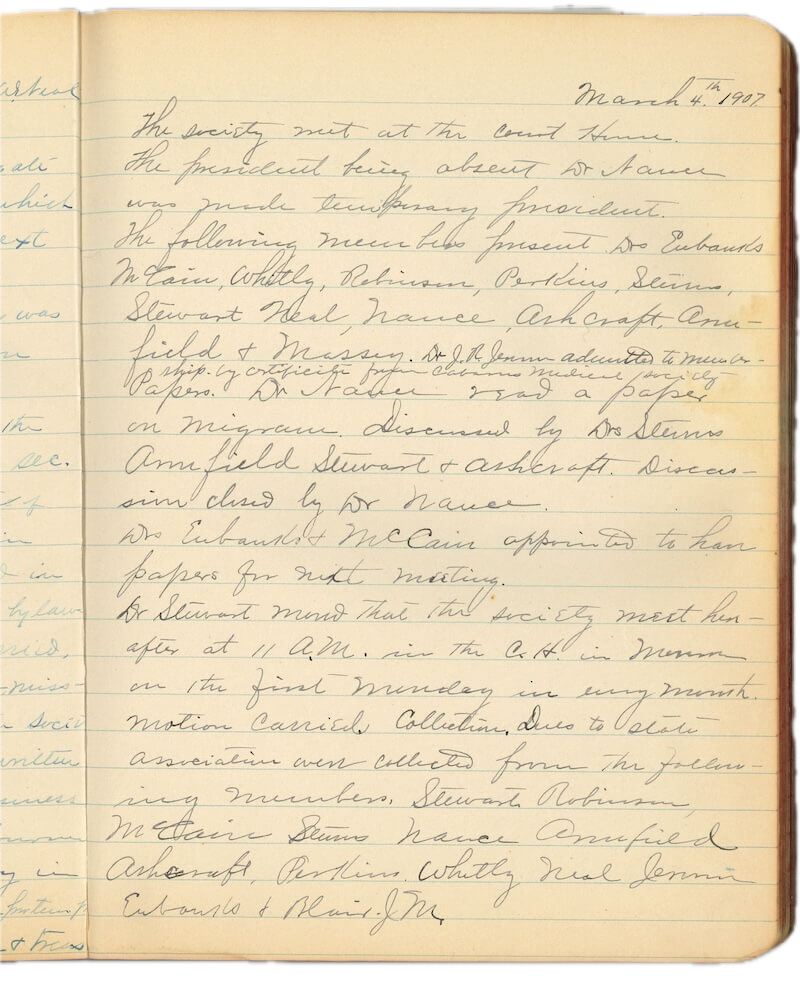 arsheal
ate
which
ext
was
the
sec.
of
in
in
bylaws
miss-
written
siness
y in
& Treas
March 4th. 1907.
The society met at the court House.
The president being absent Dr Nance
was made temporary president.
The following members present Drs Eubanks
McCain, Whitly, Robinson, Perkins, Stevens,
Stewart Neal, Nance, Ashcraft, Arm-
field & Massey. Dr J. R. Jerome admitted to member-
ship. by certificate from Cabarrus Medical society
Papers. Dr Nance read a paper
on Migrane. Discussed by Drs Stevens
Armfield Stewart & Ashcraft. Discus-
sion closed by Dr Nance.
Drs Eubanks & McCain appointed to have
papers for next meeting.
Dr Stewart moved that the society meet here-
after at 11 A.M. in the C. H. in Monroe
on the first Monday in every month.
Motion Carried. Collection. Dues to state
association were collected from the follow-
ing members. Stewart, Robinson,
McCain Stevens Nance Armfield
Ashcraft, Perkins. Whitly Neal Jerome
Eubanks & Blair. J M.